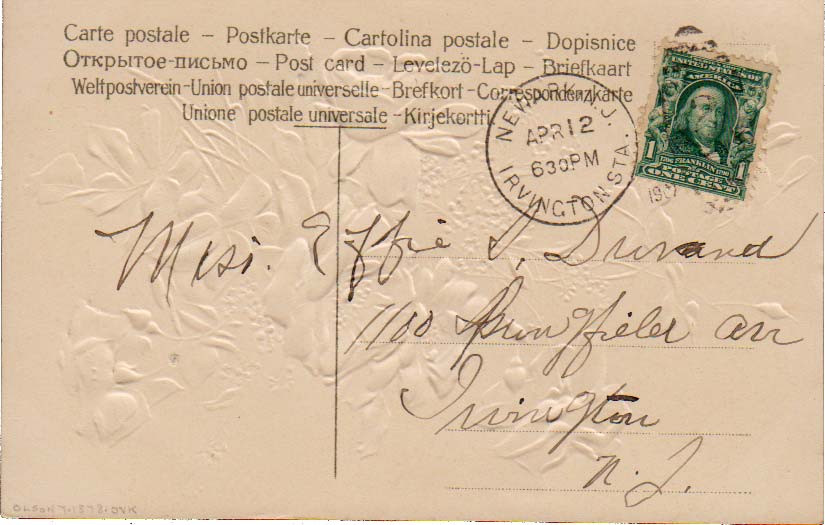 Carte postale – Postkarte – Cartolina postale – Dopisnice
Открытое-письмо – Post card – Levelezö-Lap – Briefkaart
Weltpostverein-Union postale universelle-Brefkort-Correspondenzkarte
Unione postale universale-Kirjekortti
NEWARK. N.J.
APR 12
630PM
IRVINGTON STA.
UNITED STATES OF
AMERICA
1 FRANKLIN 1
POSTAGE
ONE CENT
Miss. Effie S. Durand
1100 Springfield av
Irvington
N. J.